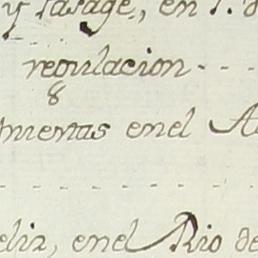 y Pasage, en 1.
regulacion - - -
mientas en el A
eliz, en el Rio de